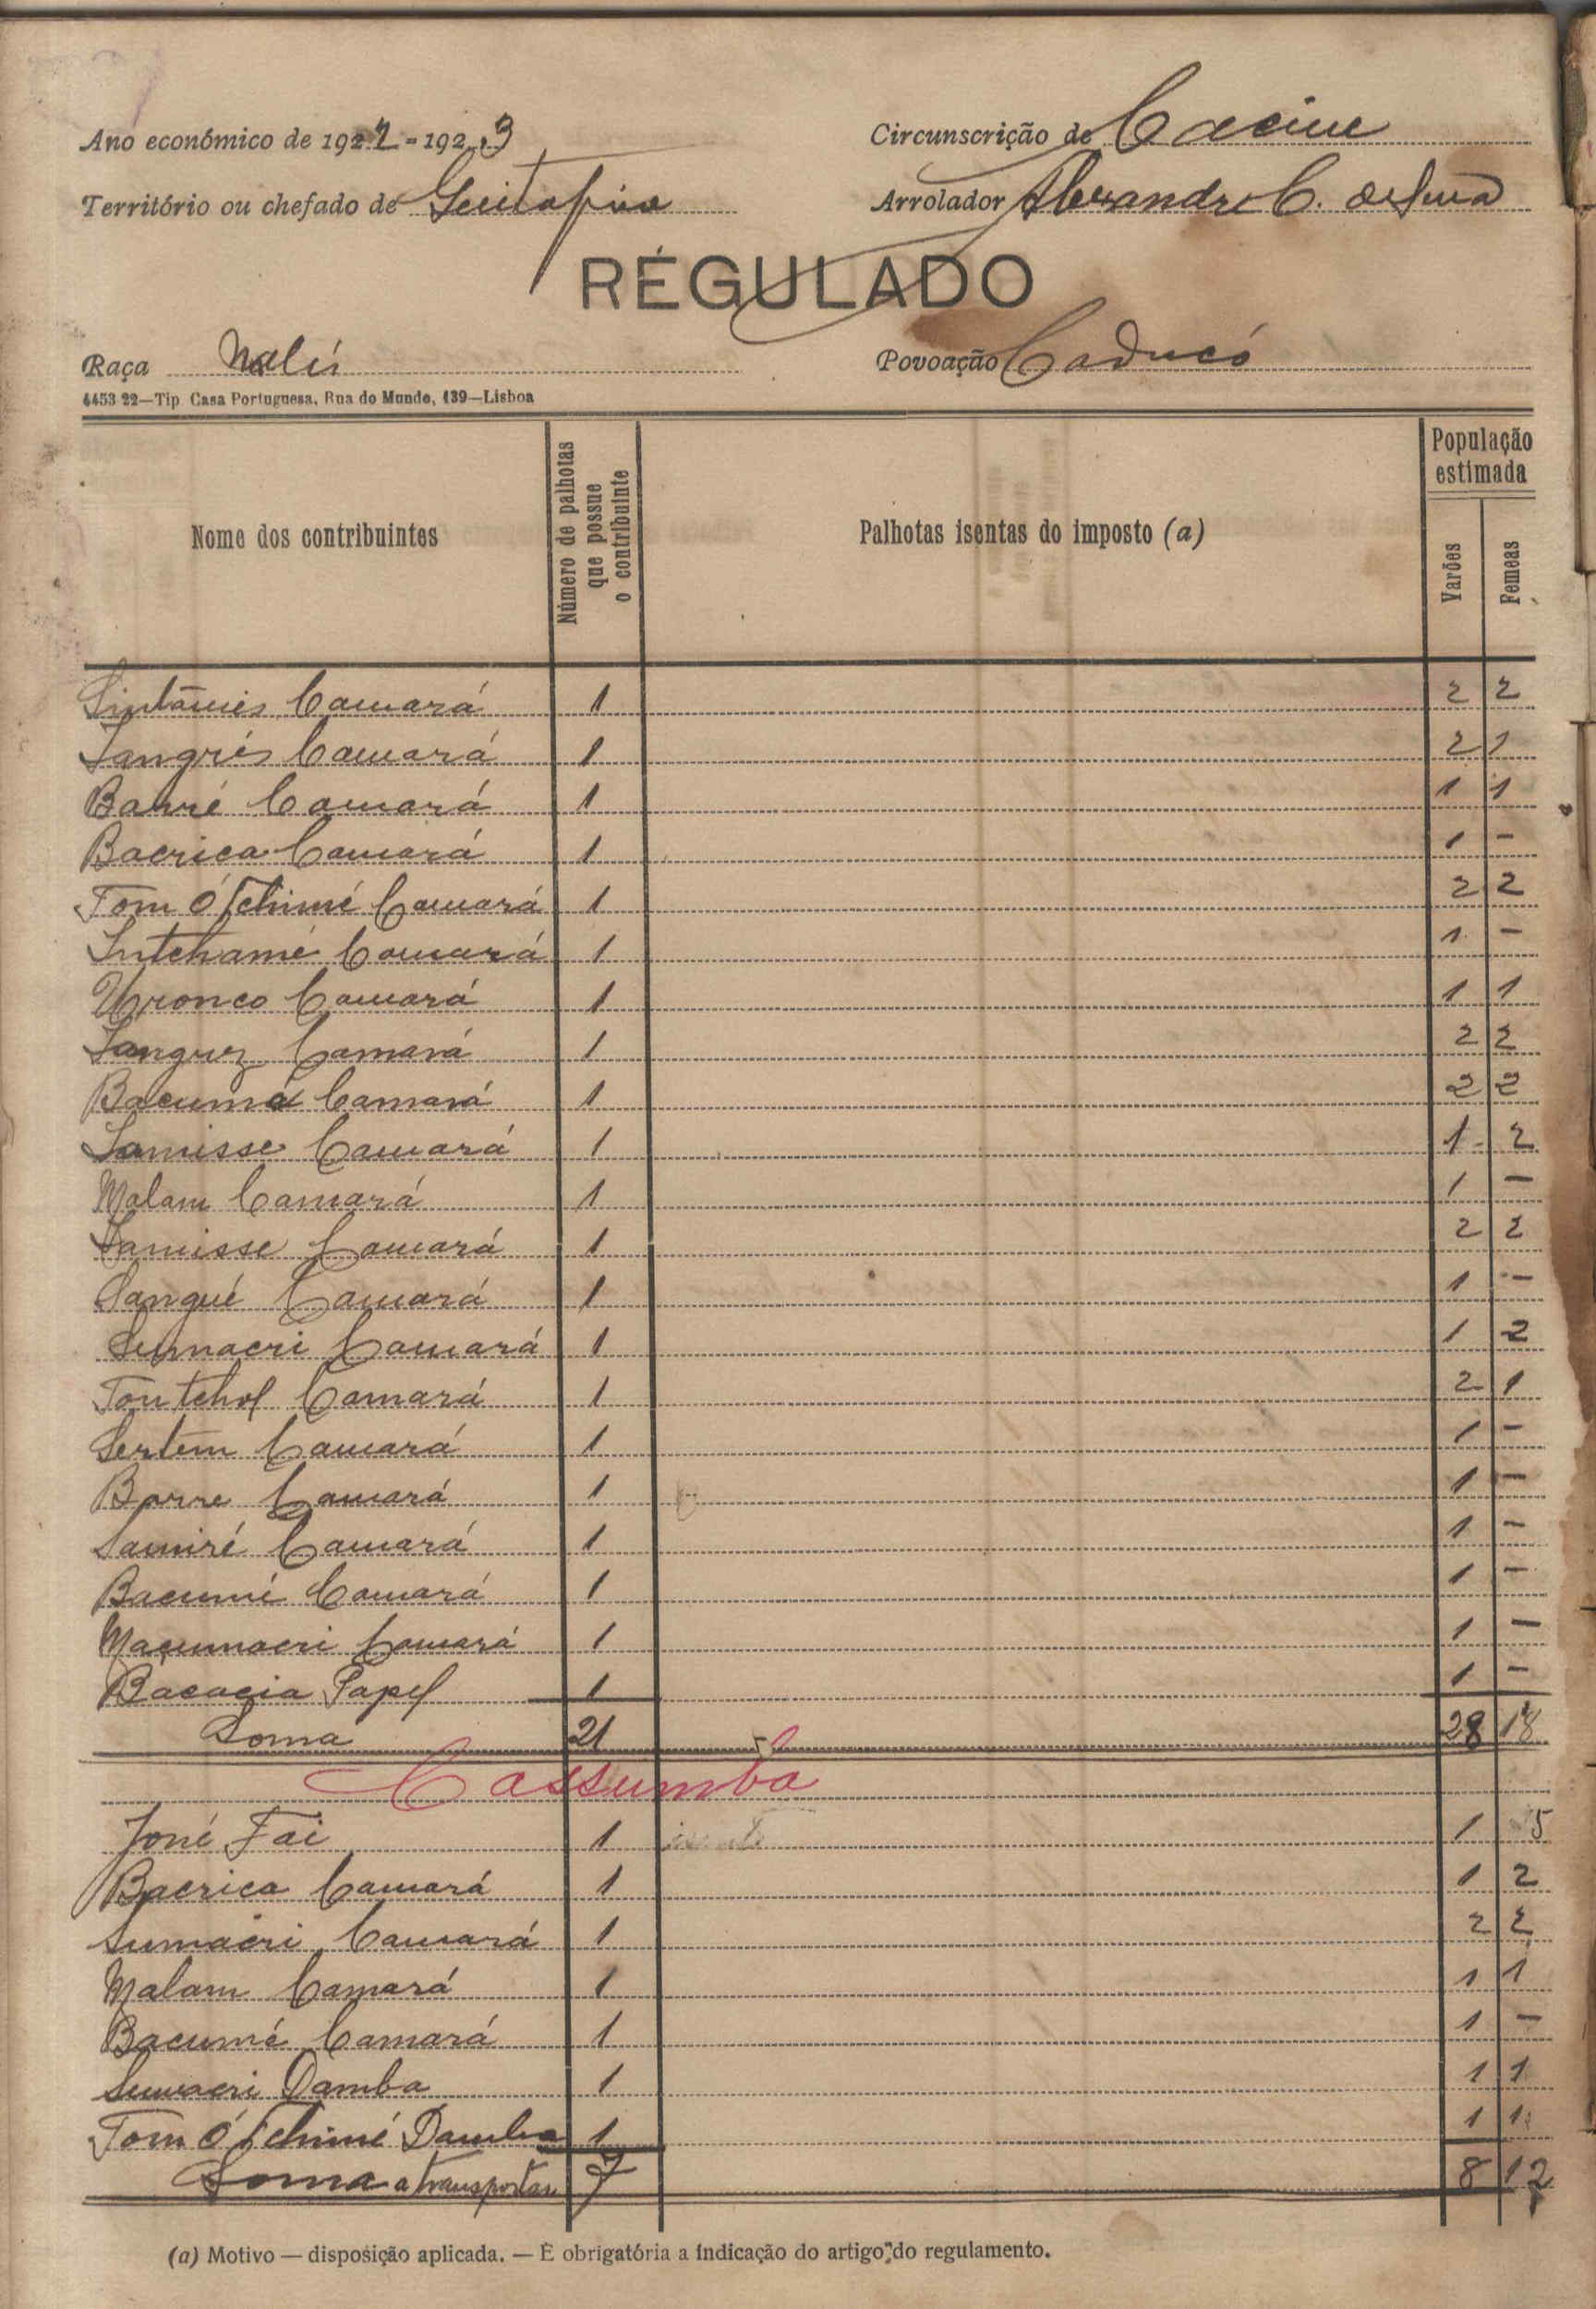 Ano económico de 1922-1923
Circunscrição de Cacine
Território ou chefado de Guitafine
Arrolador Alexandre C. de Lima
RÉGULADO
Raça Nalús
Povoação Caducó
4453 22—Tip Casa Portuguesa, Rua do Mundo, 139—Lisboa
Nome dos contribuintes Número de palhotas que possue o contribuinte Palhotas isentas do imposto (a) População estimada Varões Femeas
Camará 1 2 2
Sangrés Camará 1 2 1
Barré Camará 1 1 1
Bacrica Camará 1 1 -
Tom Ó Tchimé Camará 1 2 2
Intchamé Camará 1 1 -
Uronco Camará 1 1 1
Sanguez Camará 1 2 2
Bacumá Camará 1 2 2
Lamisse Camará 1 1 2
Malam Camará 1 1 -
Lamisse Camará 1 2 2
Sangué Camará 1 1 -
Sumacri Camará 1 1 2
Tom tchof Camará 1 2 1
Sertem Camará 1 1 -
Barre Camará 1 1 -
Samiré Camará 1 1 -
Bacumé Camará 1 1 -
Maçumacri Camará 1 1 -
Bacacia Papel 1 1 -
Soma 21 28 18
Cassumba
José Fai 1 1 5
Bacrica Camará 1 1 2
Sumacri Camará 1 2 2
Malam Camará 1 1 1
Bacumé Camará 1 1 -
Sumacri Damba 1 1 1
Tom Ó Tchimé Damba 1 1 1
Soma a transportar 7 8 12
(a) Motivo — disposição aplicada. — É obrigatória a indicação do artigo do regulamento.